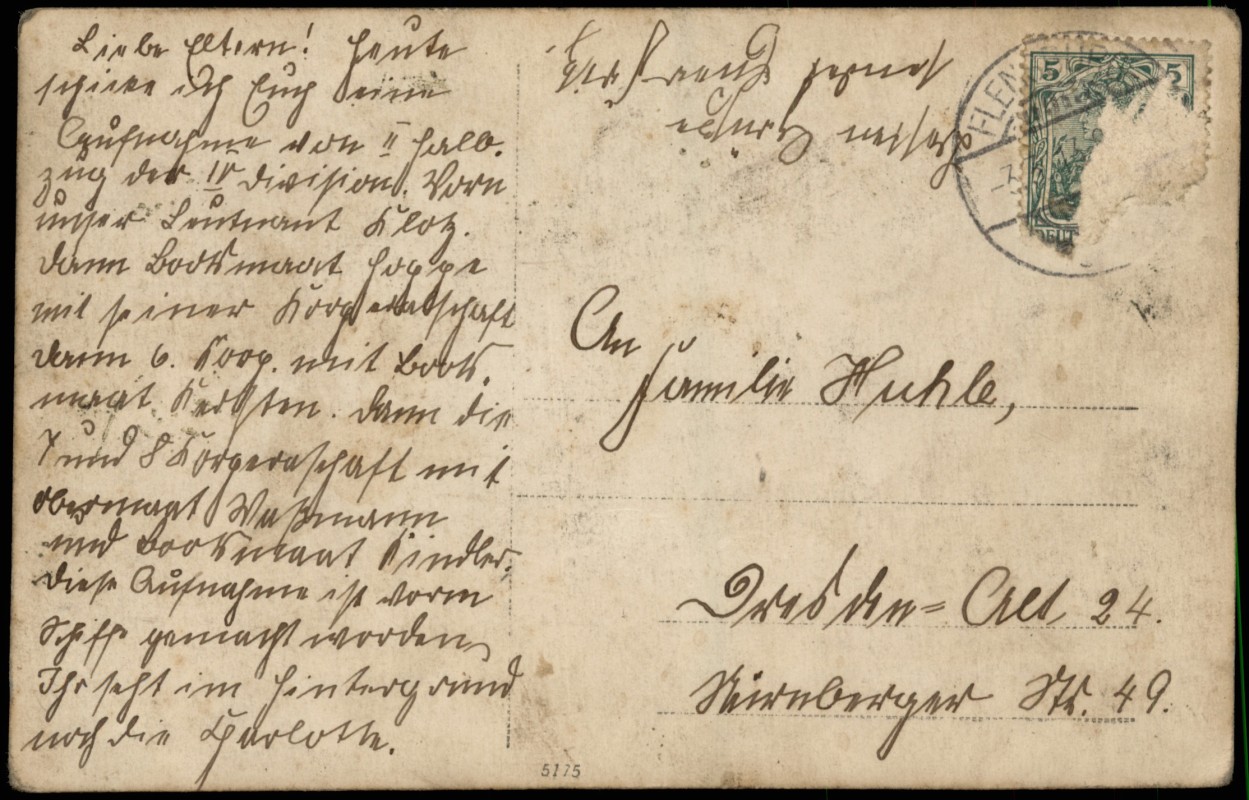 Liebe Eltern! Heute
schicke ich Euch eine
Aufnahme von II Halb-
zug der IV Division. Vorn
unser Leutnant Klotz.
Dann Bootsmaat Hoppe
mit seiner Korporalschaft
dann 6. Korp. mit Boots-
maat Kersten. Dann die
7 und 8 Korporalschaft mit
Obermaat Waßmann
und Bootsmaat Kindler.
Diese Aufnahme ist vorm
Schiff gemacht worden
Ihr seht im Hintergrund
noch die Charlotte.
An
Familie Huhle,
Dresden=Alt 24.
Nürnberger Str. 49.
FLEN
5 5
5175